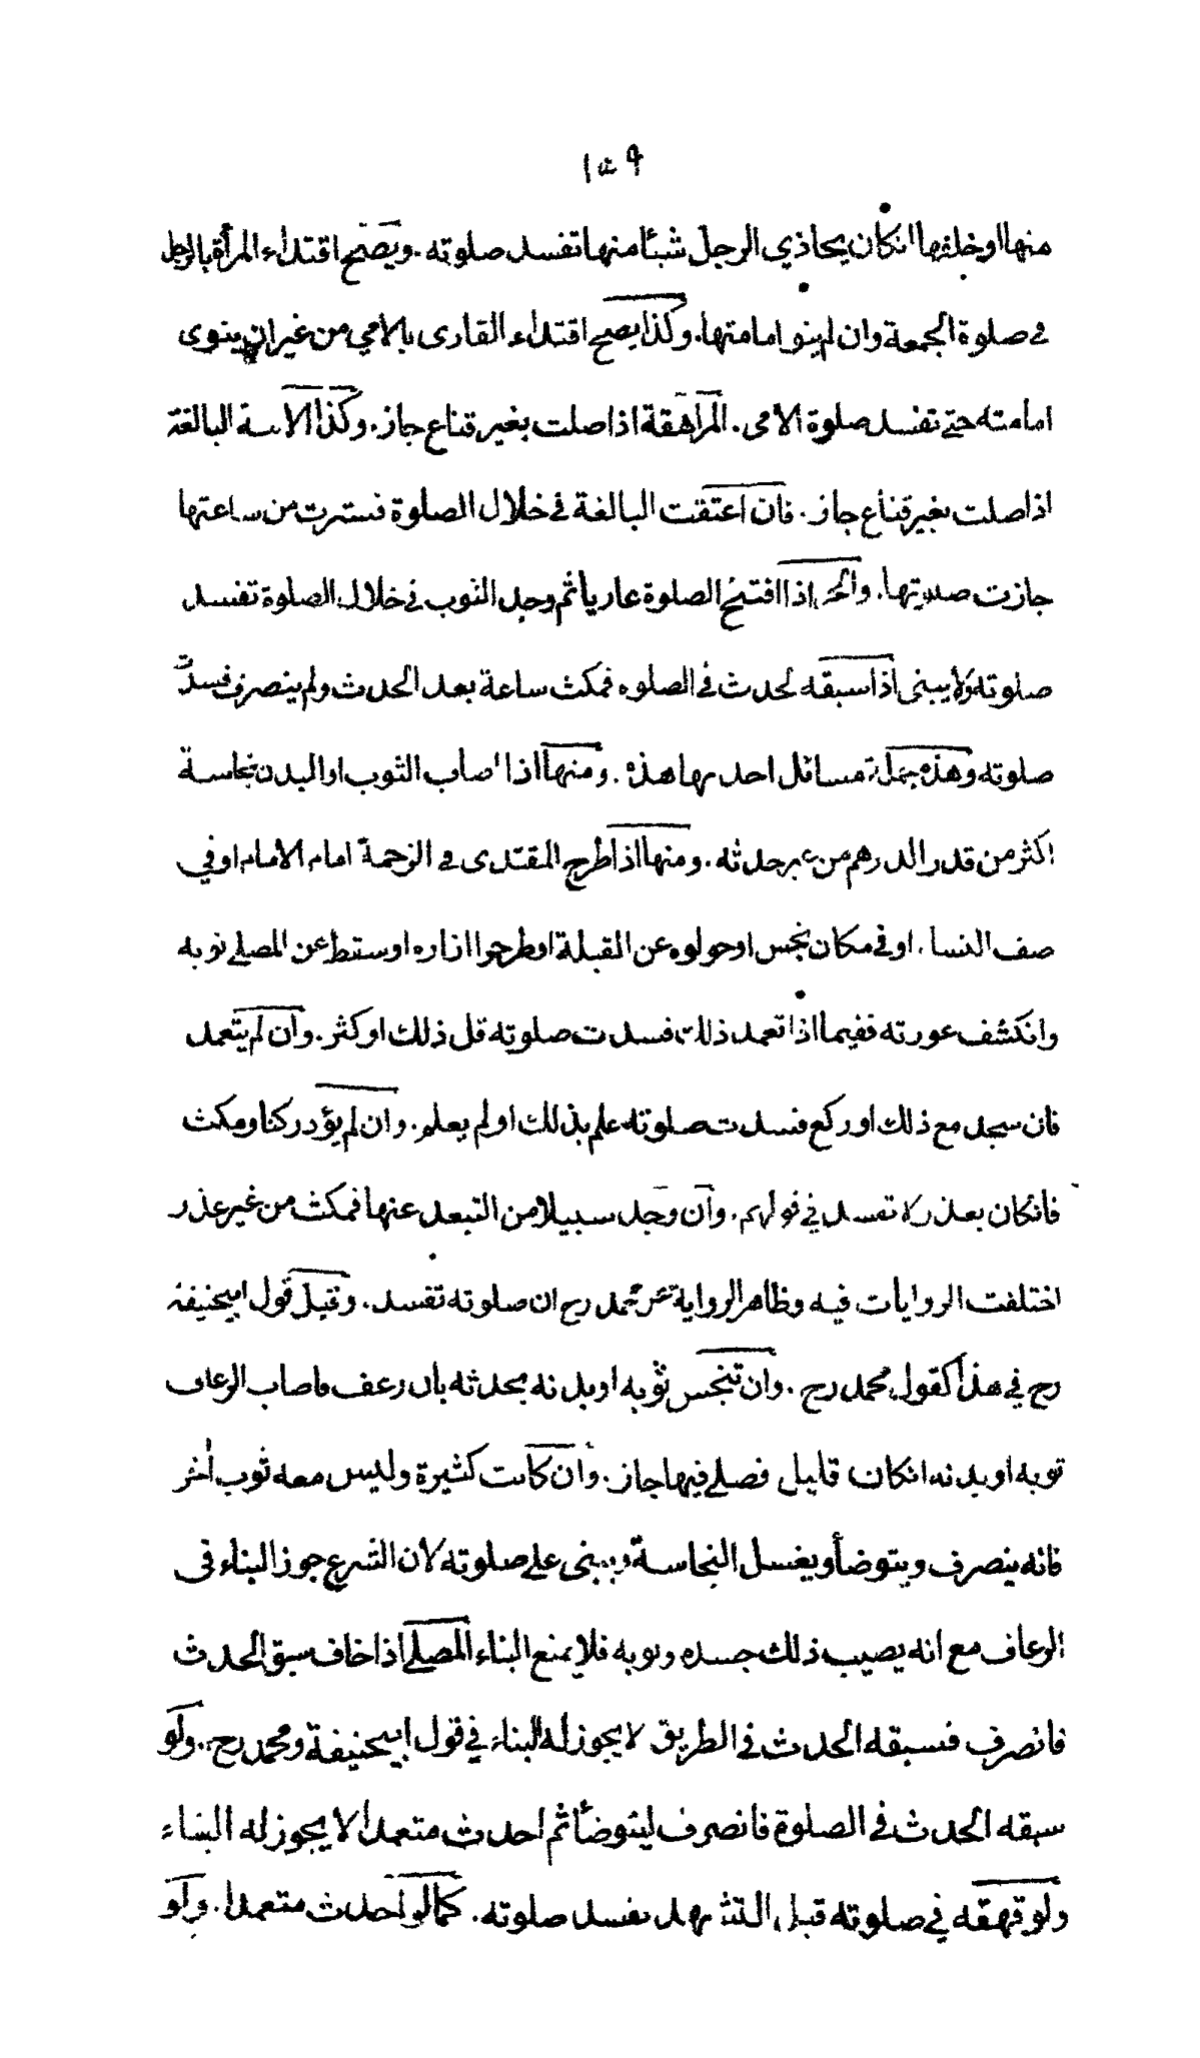 ١٥٩
منها او خلفها انكان يحاذي الرجل شيئا منها تفسد صلوته. ويصح اقتداء المرأة بالرجل
في صلوة الجمعة وان لم ينو امامتها. وكذا يصح اقتداء القارى بالامي من غير ان ينوى
امامته حتے تفسد صلوة الامى. المراهقة اذا صلت بغير قناع جاز. وكذا الامة البالغة
اذا صلت بغير قناع جاز. فان اعتقت البالغة في خلال الصلوة فسترت من ساعتها
جازت صلوتها. والحر اذا افتتح الصلوة عاريا ثم وجد الثوب في خلال الصلوة تفسد
صلوته ولا يبنى اذا سبقه لحدث في الصلوه فمكث ساعة بعد الحدث ولم ينصرف فسدت
صلوته وهذه جملة مسائل احديها هذه. ومنها اذا اصاب الثوب او البدن نجاسة
اكثر من قدر الدرهم من غير حدثه. ومنها اذا طرح المقتدى في الزحمة امام الامام او في
صف النساء او في مكان نجس او حولوه عن القبلة او طرحوا ازاره او سقط عن المصلے ثوبه
وانكشف عورته ففيما اذا تعمد ذلك فسدت صلوته قل ذلك او كثر. وان لم يتعمد
فان سجد مع ذلك او ركع فسدت صلوته علم بذلك او لم يعلم. وان لم يؤد ركنا ومكث
فانكان بعذر لا تفسد في قولهم. وان وجد سبيلا من التبعد عنها فمكث من غير عذر
اختلفت الروايات فيه وظاهر الرواية عن محمد رح ان صلوته تفسد. وقيل قول ابيحنيفة
رح في هذا كقول محمد رح. وان تنجس ثوبه او بدنه بحدثه بان رعف فاصاب الرعاف
ثوبه او بدنه انكان قليل فصلے فيها جاز. وان كانت كثيرة وليس معه ثوب اخر
فانه ينصرف ويتوضأ ويغسل النجاسة ويبنى على صلوته لان الشرع جوز البناء فى
الرعاف مع انه يصيب ذلك جسده وثوبه فلا يمنع البناء المصلے اذا خاف سبق الحدث
فانصرف فسبقه الحدث في الطريق لا يجوز له البناء في قول ابيحنيفة ومحمد رح. ولو
سبقه الحدث في الصلوة فانصرف ليتوضأ ثم احدث متعمدا لا يجوز له البناء
ولو قهقه في صلوته قبل التشهد تفسد صلوته. كما لو احدث متعمدا. ولو